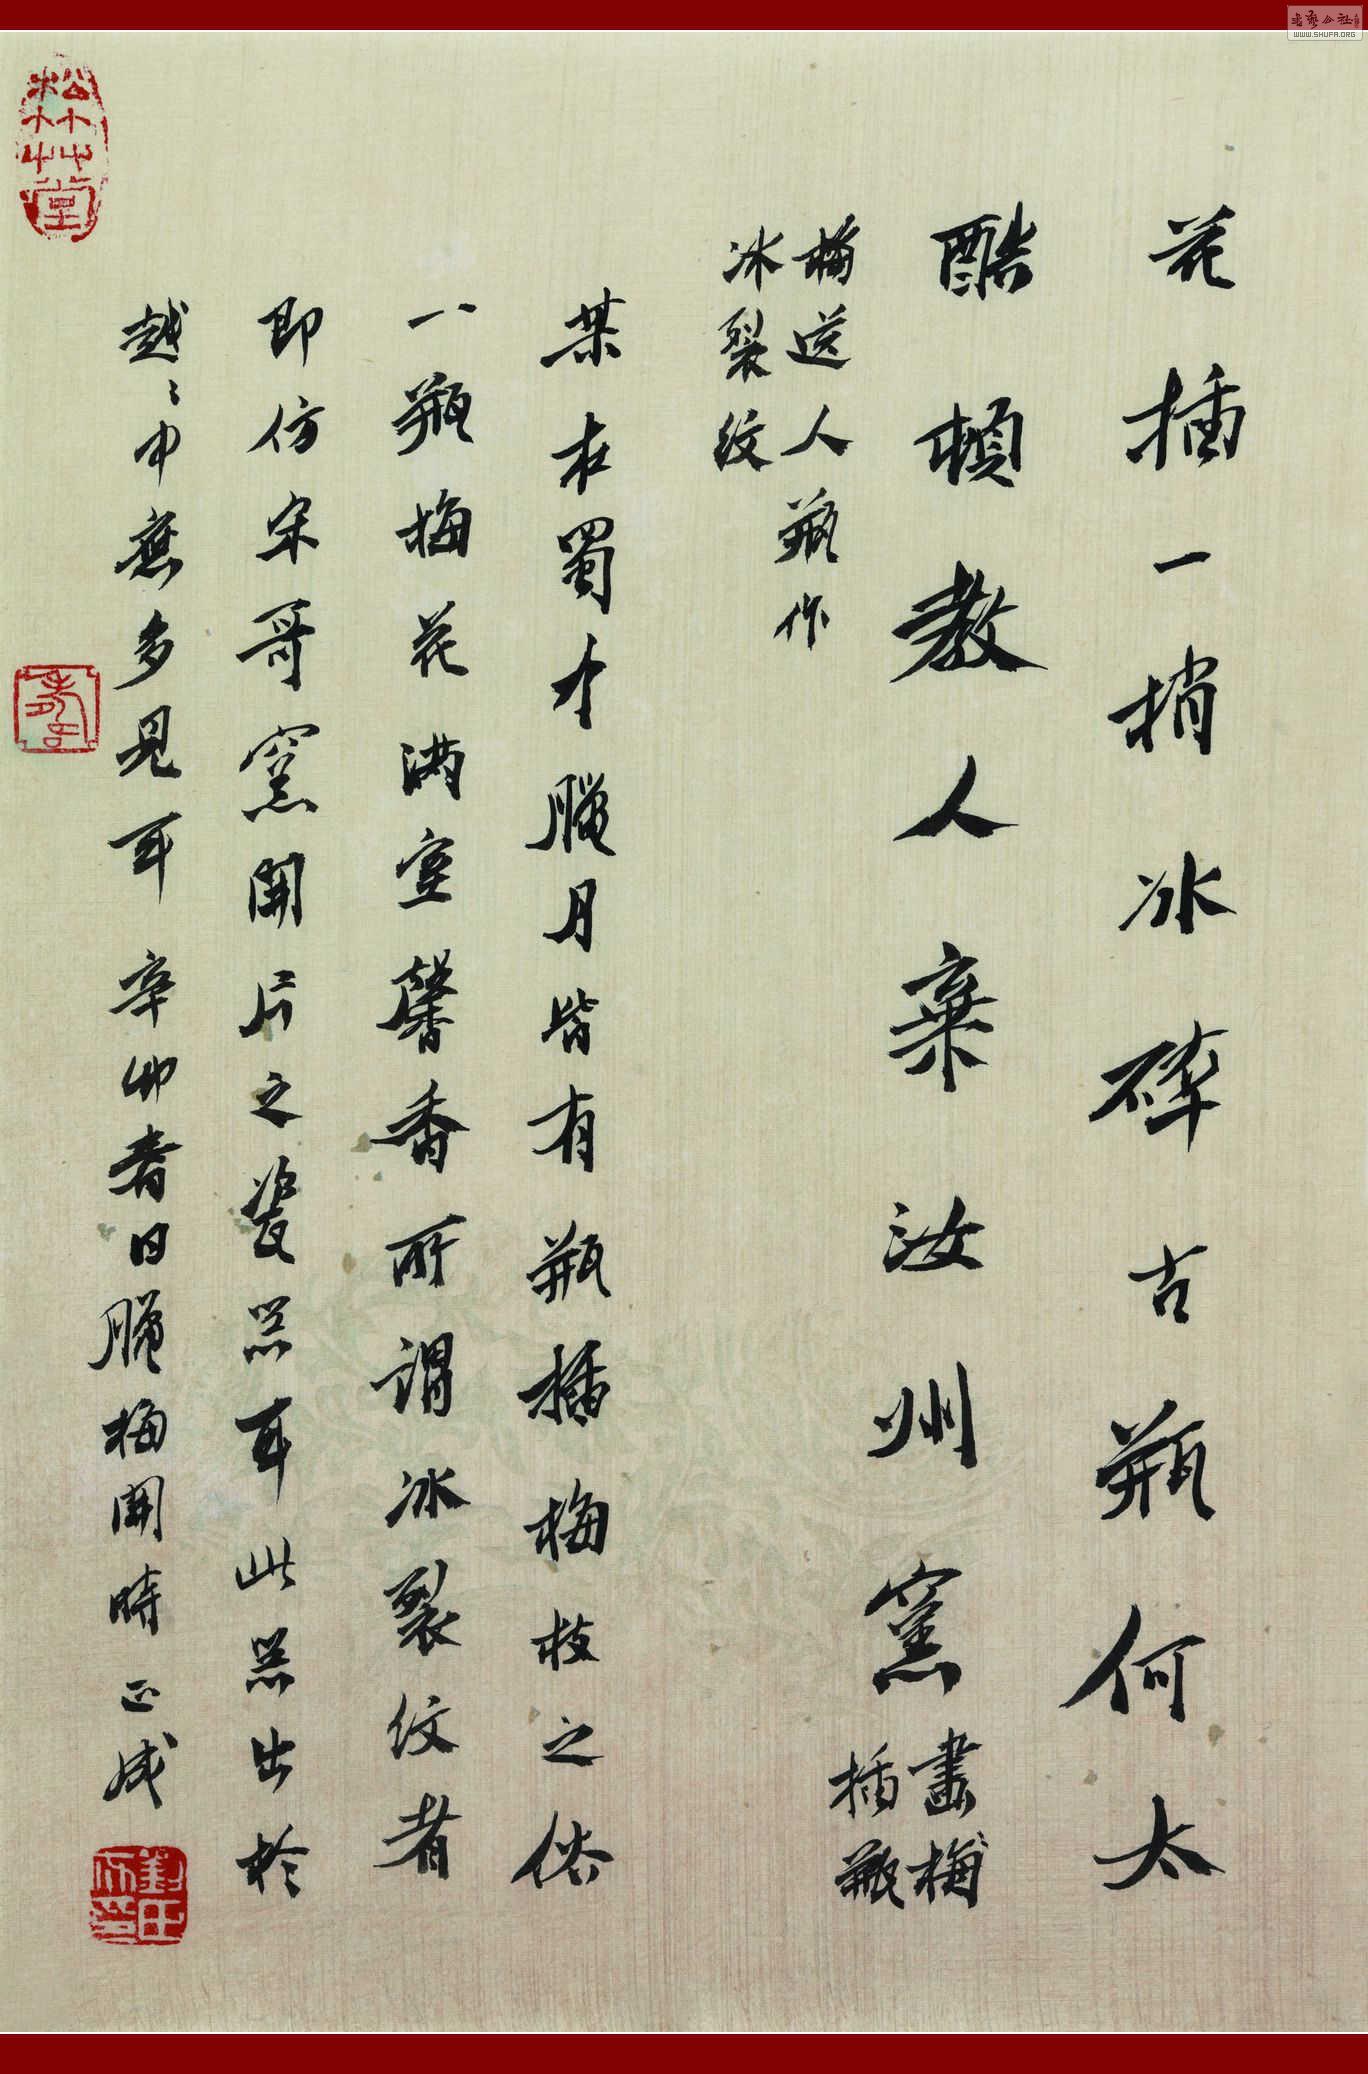 花插一梢冰碎古瓶何太
酷頓教人棄汝州窯
畫梅
插瓶
梅送人瓶作
冰裂纹
某在蜀中臘月皆有瓶插梅枝之俗
一瓶梅花满室馨香所謂冰裂纹者
即仿宋哥窯開片之瓷器耳此器出於
越〻中無多見耳 辛卯春日臘梅開時 正成
松竹艸堂
WWW.SHUFA.ORG